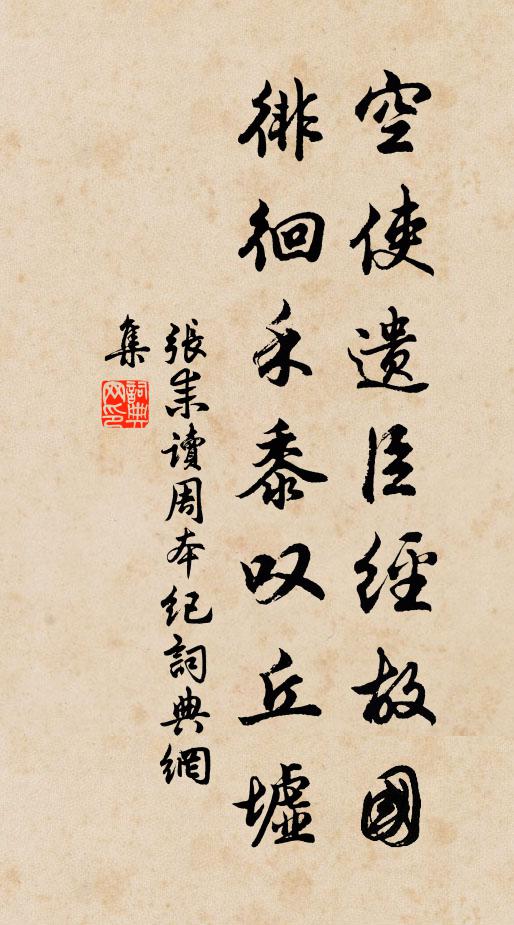 空使遗臣經故國
徘徊禾黍叹丘墟
張耒讀周本紀詞典網
集
詞典网印